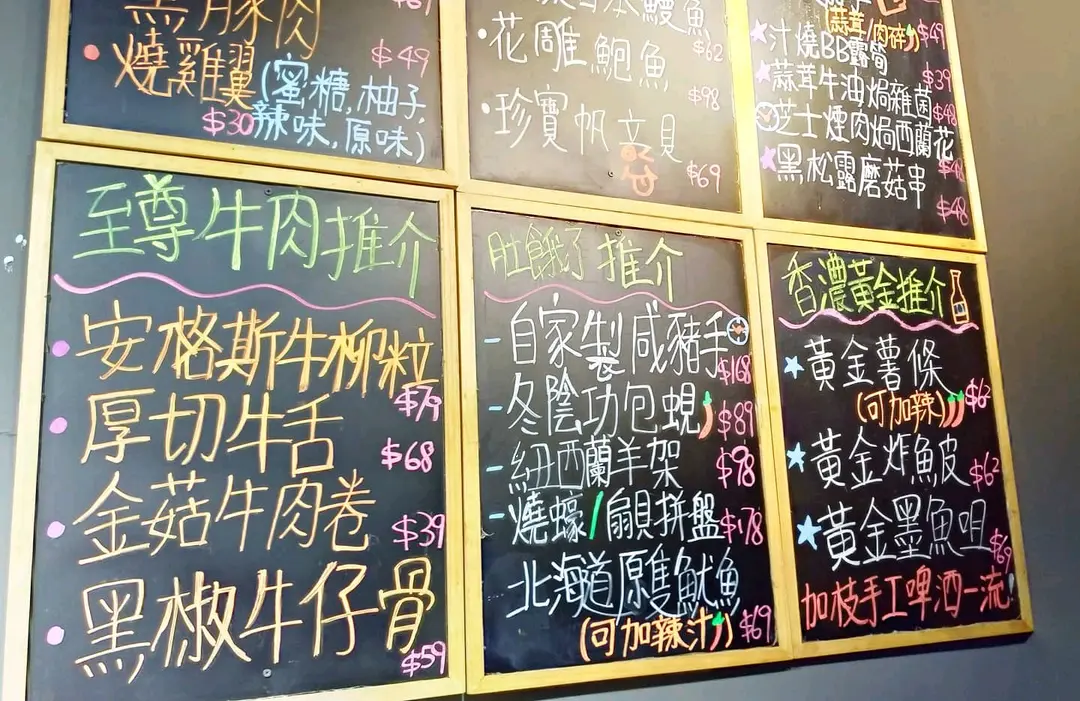 黑豚肉
$49
燒雞翼(蜜糖,柚子,
$30 辣味,原味)
日本鰻魚
$62
花雕鮑魚
$98
珍寶帆立貝
$69
(蒜茸/肉碎)
$49
汁燒BB露筍
$39
蒜茸牛油焗雜菌
$48
芝士煙肉焗西蘭花
$48
黑松露磨菇串
$48
至尊牛肉推介
安格斯牛柳粒
$79
厚切牛舌
$68
金菇牛肉卷
$39
黑椒牛仔骨
$59
肚餓了推介
自家製咸豬手
$168
冬陰功包蜆 $89
紐西蘭羊架 $98
燒蠔/扇貝拼盤 $178
北海道原隻魷魚
(可加辣汁) $69
香濃黃金推介
黃金薯條
(可加辣)
黃金炸魚皮 $62
黃金墨魚咀
$69
加枝手工啤酒一流!